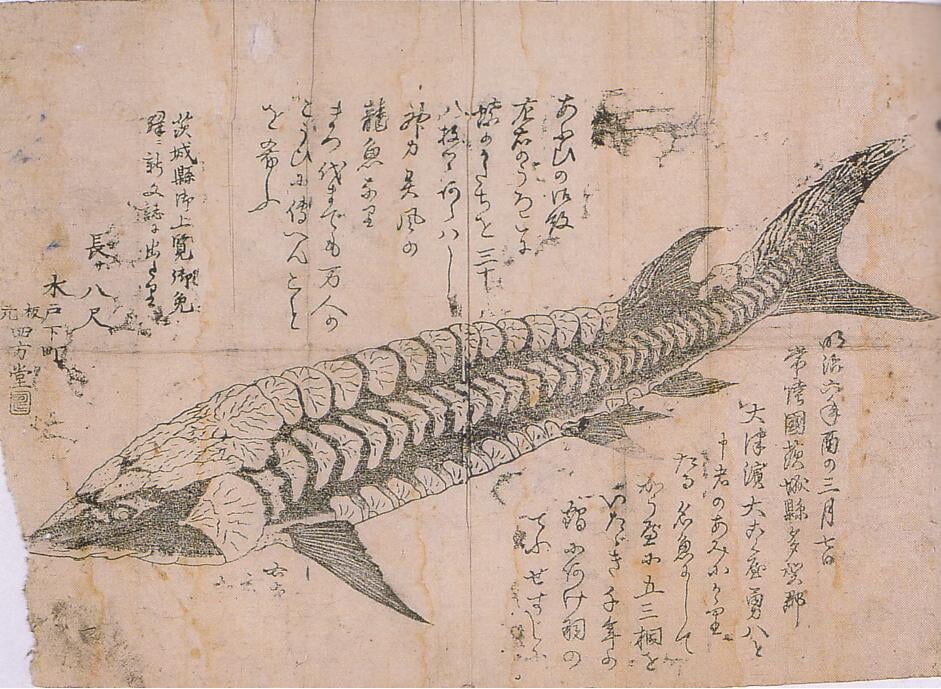 明治六年酉の三月七日
常陸國茨城縣多賀郡
大津濱大こく屋勇八と
申者のあみにかゝ里
たる名魚にして
かうべに五三桐を
いたゞき千年の
羽の
てふせすじに
あふひの御紋
左右のうろこは
かたちを三十
八枚
神力異風の
龍魚な里
まつ代までも万人の
傳へんこと
を希ふ
茨城縣御上覧御免
新文誌に出
長サ八尺
水戸下町
板元四方堂